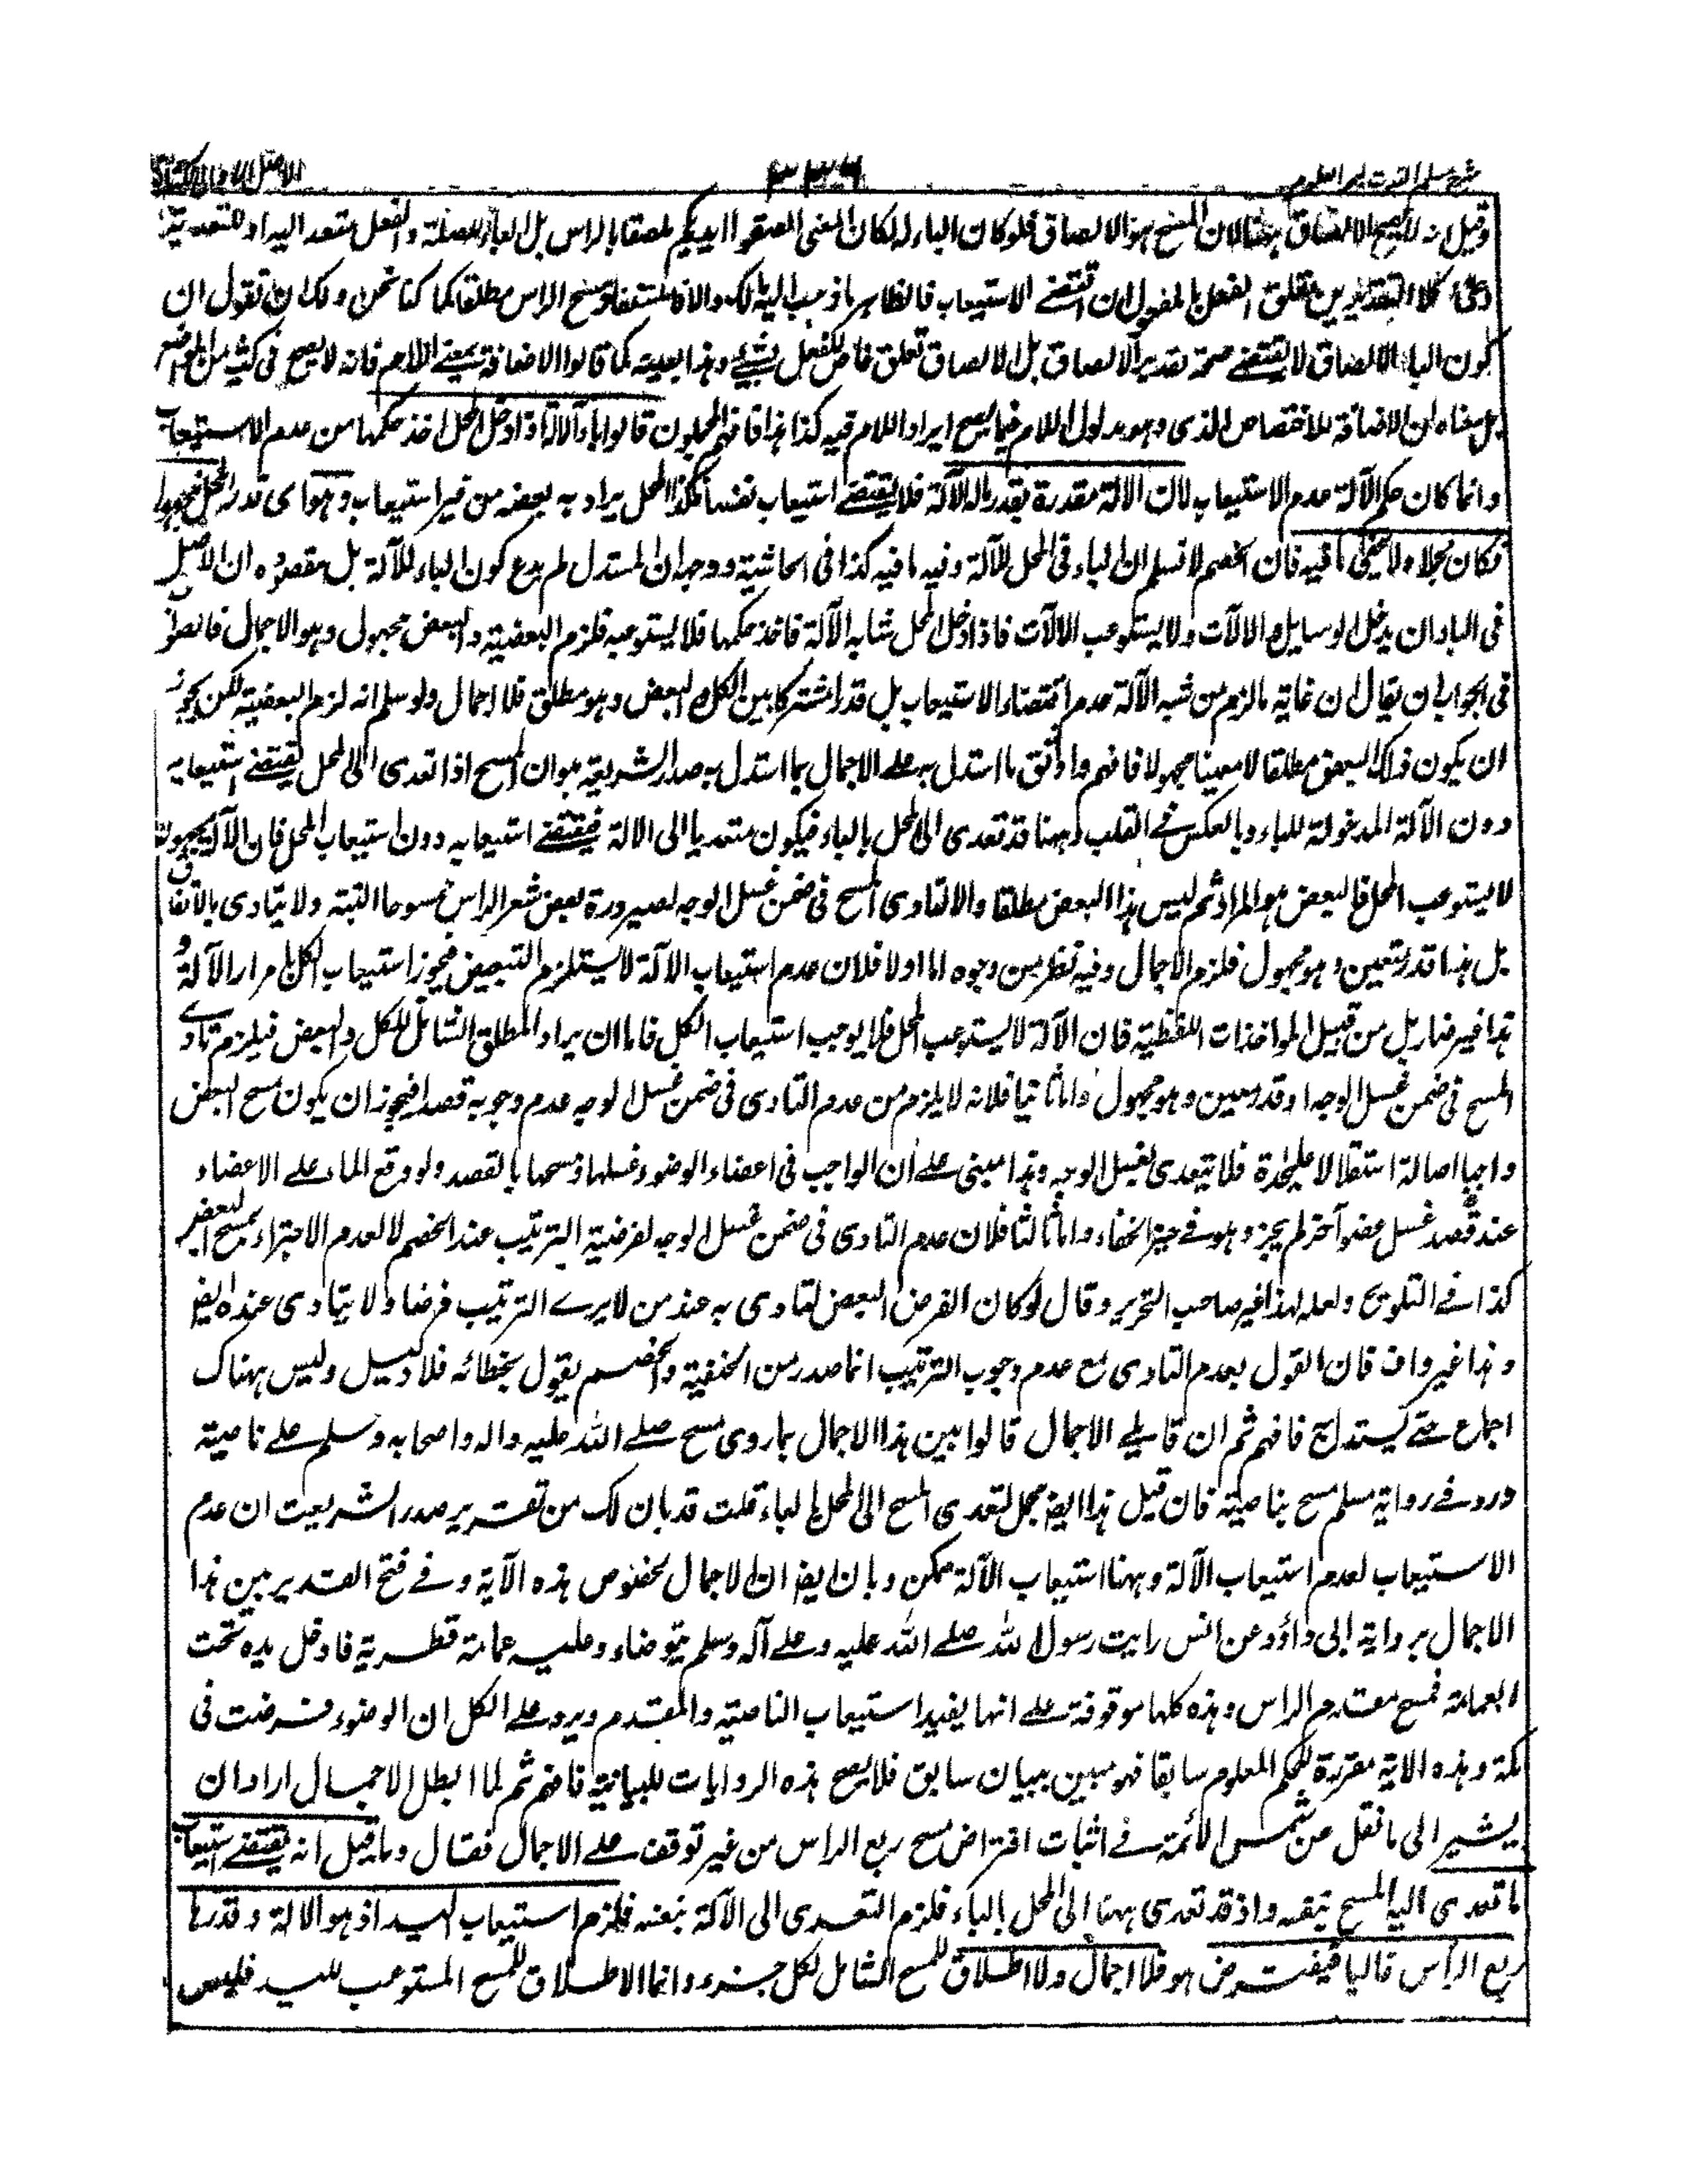 شرح مسلم الثبوت لبحر العلوم ٣٣٦ الاصل الاول الكتاب
وقيل انه لا يصح الالصاق ههنا لان المسح هو الالصاق فلو كان الباء له لكان المعنى الصقوا ايديكم ملصقا بالراس بل الباء للصلة والفعل متعد اليه او للتعدية
وعلى كلا التقديرين تعلق الفعل بالمفعول ان اقتضى الاستيعاب فالظاهر ما ذهب اليه مالك والا فالمستفاد مسح الراس مطلقا كما كنا نحن ولك ان تقول ان
كون الباء للالصاق لا يقتضى صحة تقدير الالصاق بل الالصاق تعلق خاص للفعل بشيء وهذا بعينه كما قالوا الاضافة بمعنى اللام فانه لا يصح فى كثير من المواضع
بل معناه ان الاضافة للاختصاص الذى وهو مدلول اللام فيما يصح ايراد اللام فيه كذا هذا فافهم المجملون قالوا باء الآلة اذا دخل المحل اخذ حكمها من عدم الاستيعاب
وانما كان حكم الآلة عدم الاستيعاب لان الالة مقدرة بقدر ماله الآلة فلا يقتضى استيعاب نفسها فكذا المحل يراد به بعضه من غير استيعاب وهو اى قدر المحل مجهول
فكان مجملا ولا يخفى ما فيه فان الخصم لا نسلم ان الباء فى المحل للآلة وفيه ما فيه كذا فى الحاشية ووجهه ان المستدل لم يدع كون الباء للآلة بل مقصوده ان الاصل
فى الباء ان يدخل الوسايل والالات ولا يستوعب الالات فاذا دخل المحل شابه الآلة فاخذ حكمها فلا يستوعبه فلزم البعضية والبعض مجهول وهو الاجمال فالصواب
فى الجواب ان يقال ان غاية ما لزم من شبه الآلة عدم اقتضاء الاستيعاب بل قدرا مشتركا بين الكل والبعض وهو مطلق فلا اجمال ولو سلم انه لزم البعضية لكن يجوز
ان يكون ذلك البعض مطلقا لا معينا مجهولا فافهم واوثق ما استدل به على الاجمال بما استدل به صدر الشريعة هو ان المسح اذا تعدى الى المحل يقتضى استيعابه
دون الآلة المدخولة للباء وبالعكس فى القلب وههنا قد تعدى الى المحل بالباء فيكون متعديا الى الالة فيقتضى استيعابه دون استيعاب المحل فان الآلة
لا يستوعب المحل فالبعض هو المراد ثم ليس هذا البعض مطلقا والا لتادى المسح فى ضمن غسل الوجه لصيرورة بعض شعر الراس ممسوحا البتة ولا يتادى بالاتفاق
بل هذا قدر متعين وهو مجهول فلزم الاجمال وفيه نظر من وجوه اما اولا فلان عدم استيعاب الالة لا يستلزم التبعيض فيجوز استيعاب الكل بامرار الآلة و
هذا غير ضار بل من قبيل المواخذات اللفظية فان الآلة لا يستوعب المحل فلا يوجب استيعاب الكل فاما ان يراد المطلق الشامل للكل والبعض فيلزم تادى
المسح فى ضمن غسل الوجه او قدر معين وهو مجهول واما ثانيا فلانه لا يلزم من عدم التادى فى ضمن غسل الوجه عدم وجوبه قصدا فيجوز ان يكون مسح البعض
واجبا اصالة استقلالا عليحدة فلا يتعدى بغسل الوجه وهذا مبنى على ان الواجب فى اعضاء الوضوء غسلها ومسحها بالقصد ولو وقع الماء على الاعضاء
عند قصد غسل عضو آخر لم يجز وهو فى حيز الخفاء واما ثالثا فلان عدم التادى فى ضمن غسل الوجه لفرضية الترتيب عند الخصم لا لعدم الاجتزاء بمسح البعض
كذا فى التلويح ولعله لهذا غير صاحب التحرير وقال لو كان الفرض البعض لتادى به عند من لا يرى الترتيب فرضا ولا يتادى عنده ايضا
وهذا غير واف فان القول بعدم التادى مع عدم وجوب الترتيب انما صدر من الحنفية والخصم يقول بخطائه فلا دليل وليس هناك
اجماع حتى يستدل به فافهم ثم ان قايلى الاجمال قالوا بين هذا الاجمال بما روى مسح صلى الله عليه واله واصحابه وسلم على ناصيته
ورد فى رواية مسلم مسح بناصيته فان قيل هذا ايضا مجمل لتعدى المسح الى المحل بالباء قلت قد بان لك من تقرير صدر الشريعة ان عدم
الاستيعاب لعدم استيعاب الآلة وههنا استيعاب الآلة ممكن وبان ايضا ان الاجمال لخصوص هذه الآية وفى فتح القدير بين هذا
الاجمال برواية ابى داؤد عن انس رايت رسول الله صلى الله عليه وعلى آله وسلم يتوضاء وعليه عمامة قطرية فادخل يده تحت
العمامة فمسح مقدم الراس وهذه كلها موقوفة على انها يفيد استيعاب الناصية والمقدم ويرد على الكل ان الوضوء فرضت فى
مكة وهذه الاية مقررة للحكم المعلوم سابقا فهو مبين ببيان سابق فلا يصح هذه الروايات للبيانية فافهم ثم لما ابطل الاجمال اراد ان
يشير الى ما نقل عن شمس الائمة فى اثبات افتراض مسح ربع الراس من غير توقف على الاجمال فقال وما قيل انه يقتضى استيعاب
ما تعدى اليه المسح بنفسه واذ قد تعدى ههنا الى المحل بالباء فلزم التعدى الى الآلة بنفسه فلزم استيعاب اليد اذ هو الالة وقدرها
ربع الرأس غالبا فيفترض هو فلا اجمال ولا اطلاق للمسح الشامل لكل جزء وانما الاطلاق للمسح المستوعب لليد فليس